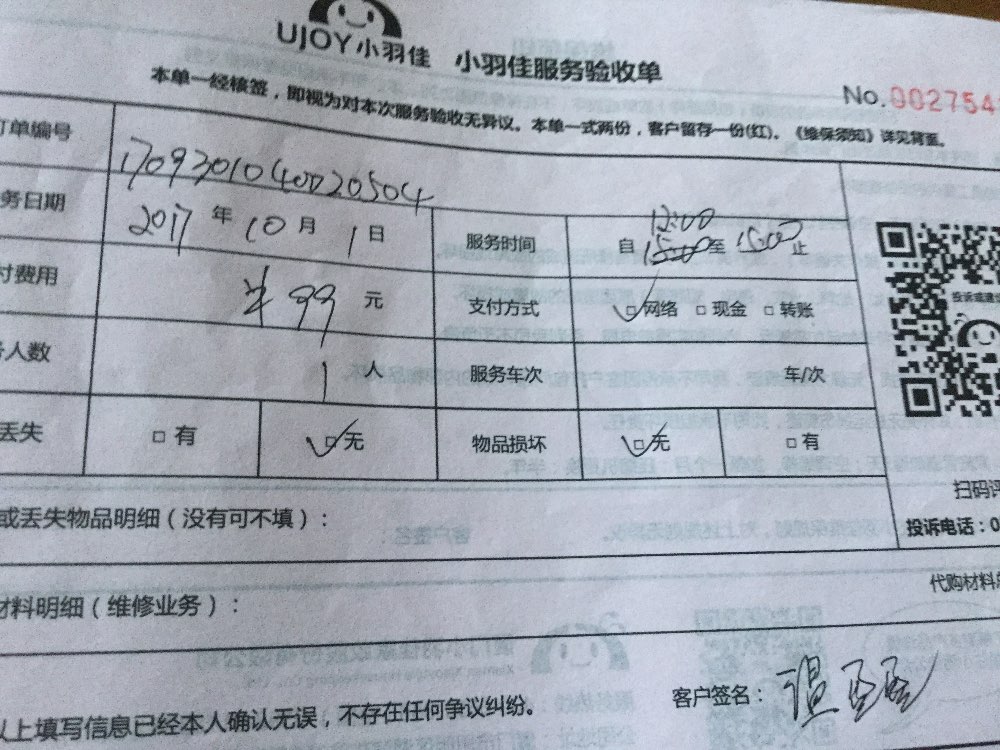 UJOY小羽佳 小羽佳服务验收单
本单一经核签，即视为对本次服务验收无异议。本单一式两份，客户留存一份(红)。《维保须知》详见背面。
No.002754
订单编号 1709301040020504
务日期 2017 年 10 月 1 日 服务时间 自 12:00 至 15:00 止
付费用 ¥ 99 元 支付方式 □网络 □现金 □转账
务人数 1 人 服务车次 车/次
丢失 □有 □无 物品损坏 □无 □有
投诉或建议
扫码评
投诉电话：0
或丢失物品明细（没有可不填）：
代购材料总
材料明细（维修业务）：
以上填写信息已经本人确认无误，不存在任何争议纠纷。
客户签名：温